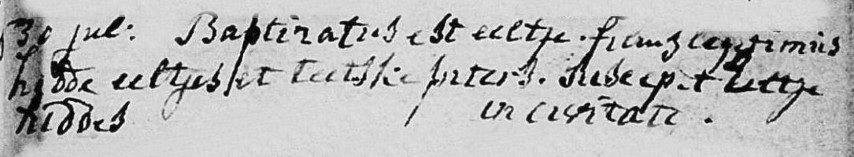 30 jul: Baptizatus est eeltje. filius legitimus
hidde eeltjes et tietske piters. suscepit tettje
hiddes in civitate.